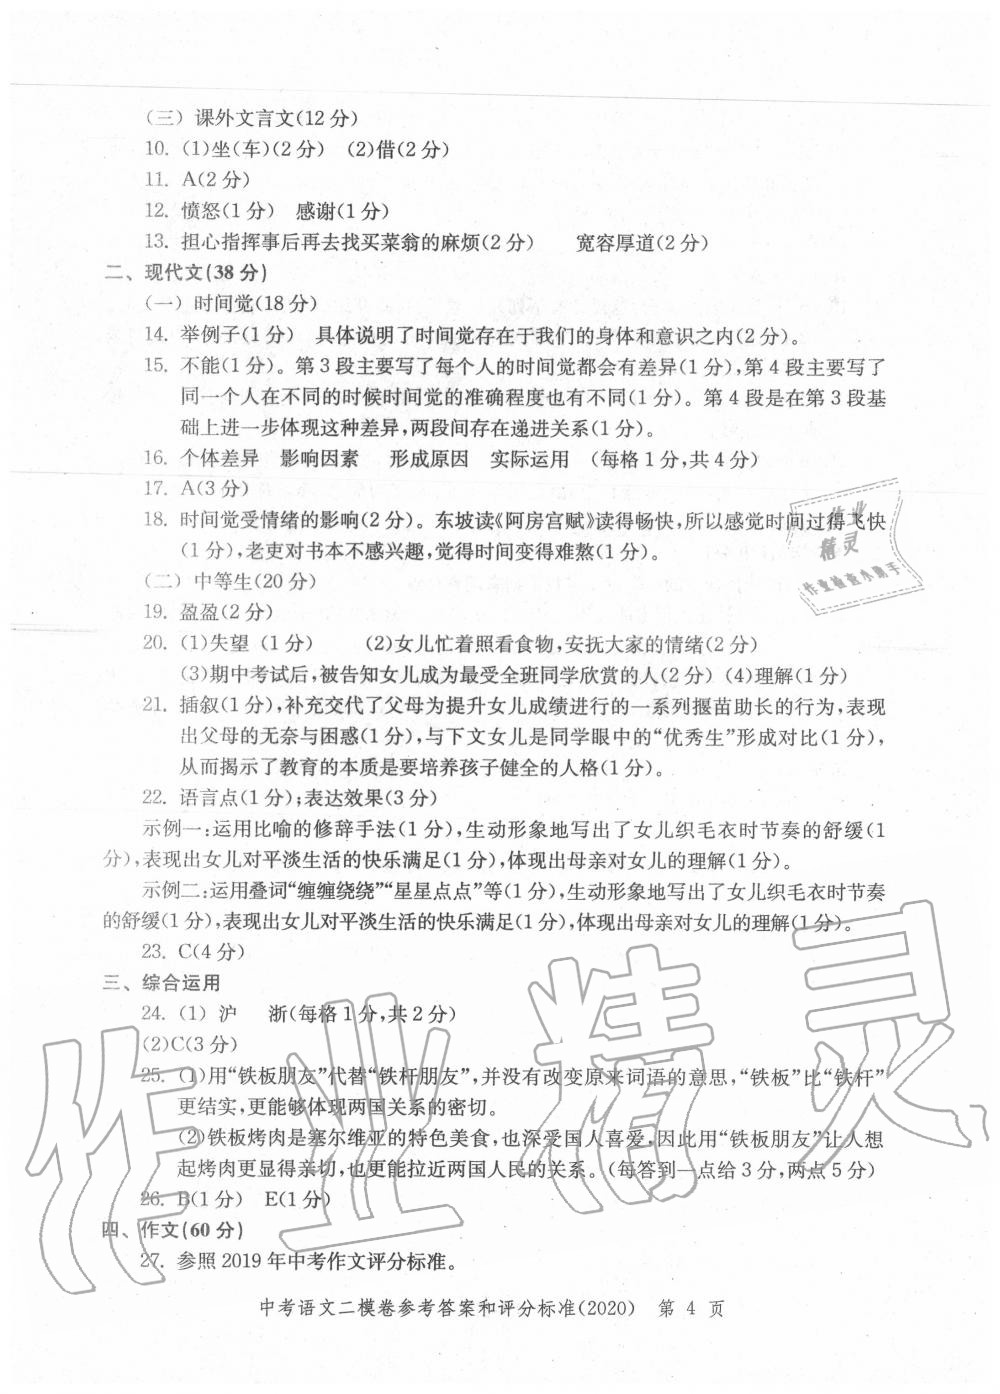 (三) 课外文言文(12 分)
10. (1)坐(车)(2 分) (2)借(2 分)
11. A(2 分)
12. 愤怒(1 分) 感谢(1 分)
13. 担心指挥事后再去找买菜翁的麻烦(2 分) 宽容厚道(2 分)
二、现代文(38 分)
(一) 时间觉(18 分)
14. 举例子(1 分) 具体说明了时间觉存在于我们的身体和意识之内(2 分)。
15. 不能(1 分)。第 3 段主要写了每个人的时间觉都会有差异(1 分),第 4 段主要写了
同一个人在不同的时候时间觉的准确程度也有不同(1 分)。第 4 段是在第 3 段基
础上进一步体现这种差异,两段间存在递进关系(1 分)。
16. 个体差异 影响因素 形成原因 实际运用 (每格 1 分,共 4 分)
17. A(3 分)
18. 时间觉受情绪的影响(2 分)。东坡读《阿房宫赋》读得畅快,所以感觉时间过得飞快
(1 分),老吏对书本不感兴趣,觉得时间变得难熬(1 分)。
(二) 中等生(20 分)
19. 盈盈(2 分)
20. (1)失望 (1 分) (2)女儿忙着照看食物,安抚大家的情绪(2 分)
(3)期中考试后,被告知女儿成为最受全班同学欣赏的人(2 分) (4)理解(1 分)
21. 插叙(1 分),补充交代了父母为提升女儿成绩进行的一系列揠苗助长的行为,表现
出父母的无奈与困惑(1 分),与下文女儿是同学眼中的“优秀生”形成对比(1 分),
从而揭示了教育的本质是要培养孩子健全的人格(1 分)。
22. 语言点(1 分);表达效果(3 分)
示例一:运用比喻的修辞手法(1 分),生动形象地写出了女儿织毛衣时节奏的舒缓(1
分),表现出女儿对平淡生活的快乐满足(1 分),体现出母亲对女儿的理解(1 分)。
示例二:运用叠词“缠缠绕绕”“星星点点”等(1 分),生动形象地写出了女儿织毛衣时节奏
的舒缓(1 分),表现出女儿对平淡生活的快乐满足(1 分),体现出母亲对女儿的理解(1 分)。
23. C(4 分)
三、综合运用
24. (1) 沪 浙(每格 1 分,共 2 分)
(2)C(3 分)
25. (1)用“铁板朋友”代替“铁杆朋友”,并没有改变原来词语的意思,“铁板”比“铁杆”
更结实,更能够体现两国关系的密切。
(2)铁板烤肉是塞尔维亚的特色美食,也深受国人喜爱,因此用“铁板朋友”让人想
起烤肉更显得亲切,也更能拉近两国人民的关系。(每答到一点给 3 分,两点 5 分)
26. B(1 分) E(1 分)
四、作文(60 分)
27. 参照 2019 年中考作文评分标准。
中考语文二模卷参考答案和评分标准(2020) 第 4 页
作业
精灵
作业检查小助手
作业精灵